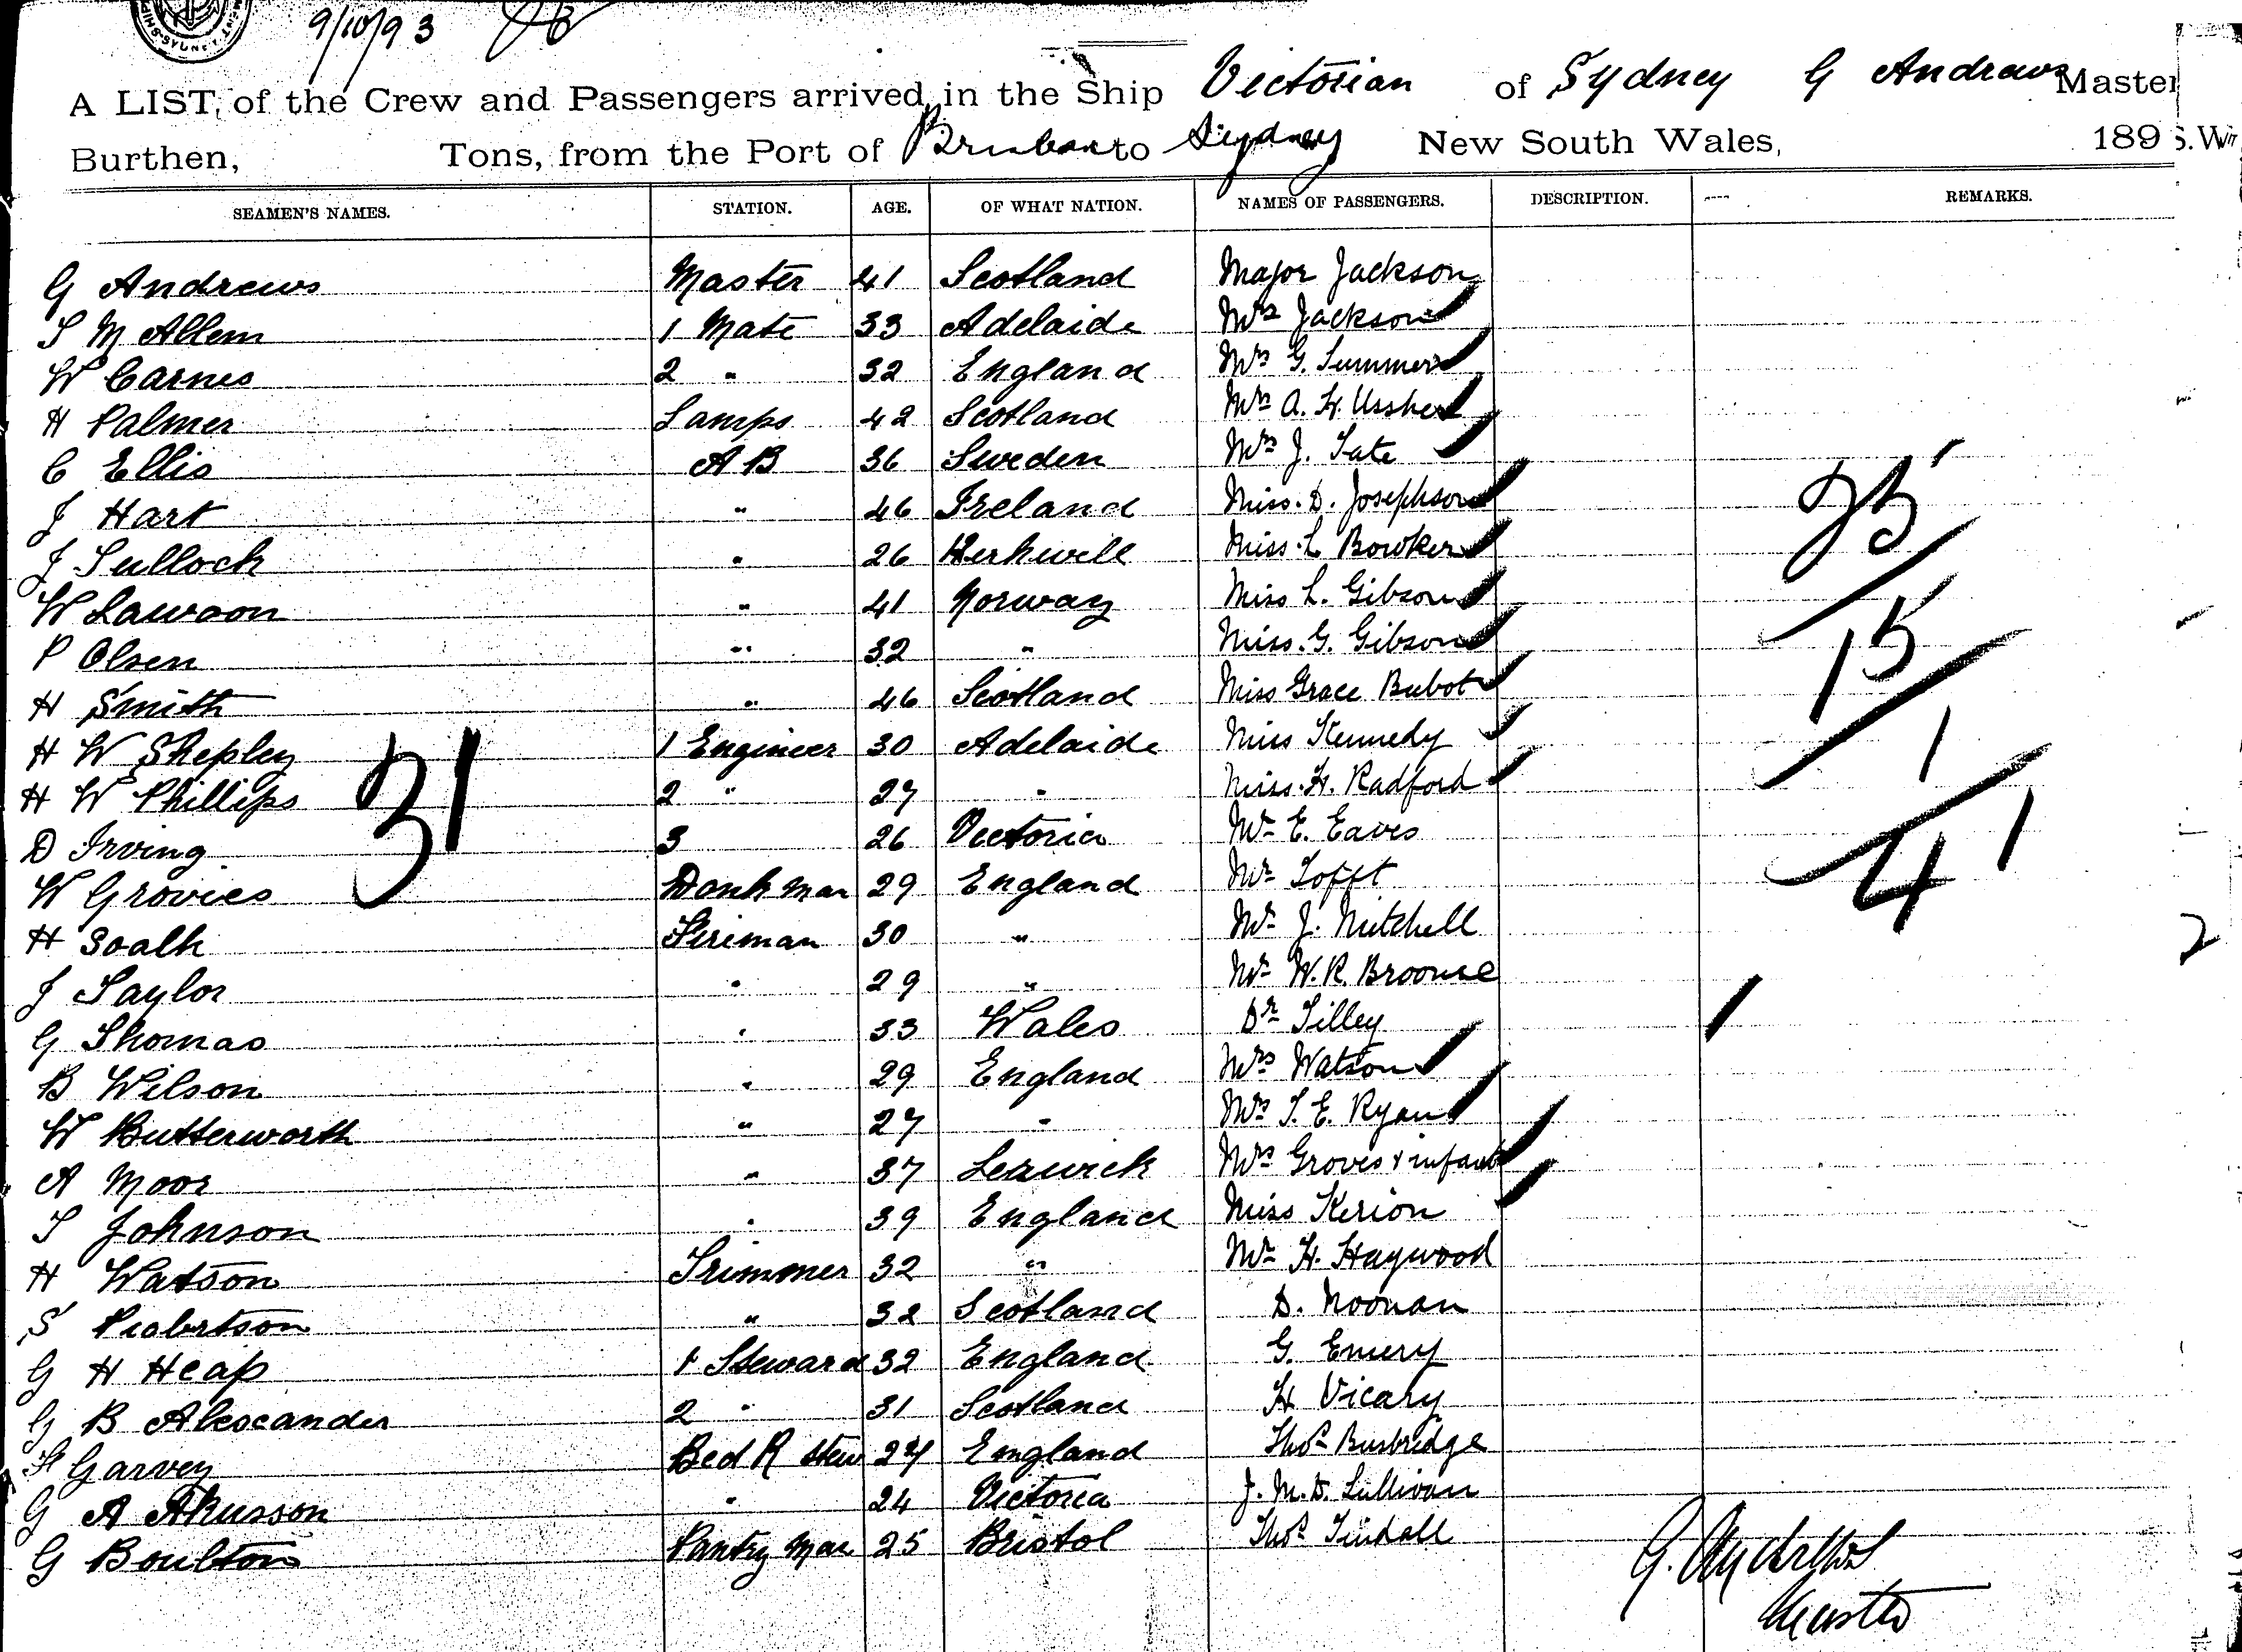 SYDNEY
9/10/93
A LIST, of the Crew and Passengers arrived in the Ship Victorian of Sydney G Andrews Master
Burthen, Tons, from the Port of Brisbane to Sydney New South Wales, 189
SEAMEN'S NAMES. STATION. AGE. OF WHAT NATION. NAMES OF PASSENGERS. DESCRIPTION. REMARKS.
G Andrews Master 41 Scotland Major Jackson
S M Allem 1 Mate 33 Adelaide Mrs Jackson
W Carnes 2 " 32 England Mrs G. Summers
H Palmer Lamps 42 Scotland Mrs A. H. Ussher
C Ellis A B 36 Sweden Mrs J. Tate
J Hart " 46 Ireland Miss. D. Josephson
J Tulloch " 26 Miss. L Bowker
W Lawson " 41 Norway Miss L. Gibson
P Olsen " 32 " Miss. G. Gibson
H Smith " 46 Scotland Miss Grace Bubot
H W Shepley 1 Engineer 30 Adelaide Miss Kennedy
H W Phillips 2 " 27 " Miss. H. Radford
D Irving 3 26 Victoria Mr E. Eaves
W Grovies Donk man 29 England Mr Tofft
H Soalk Fireman 30 " Mr J. Mitchell
J Taylor " 29 " Mr W. R. Broome
G Thomas " 33 Wales Dr Tilley
B Wilson " 29 England Mrs Watson
W Butterworth " 27 " Mrs T. E. Ryan
A Moor " 37 Lerwick Mrs Groves & infant
T Johnson " 39 England Miss Kerion
H Watson Trimmer 32 " Mr H. Haywood
S Robertson " 32 Scotland D. Noonan
G H Heap 1 Steward 32 England G. Emery
G B Alexcander 2 " 31 Scotland H Vicary
H Garvey Bed R stew 24 England Thos Busbridge
G A Akusson " 24 Victoria J. M. D. Sullivan
G Boulton Pantry Man 25 Bristol Thos Tindall
31
25
15
1
41
2
G. Andrews
Master